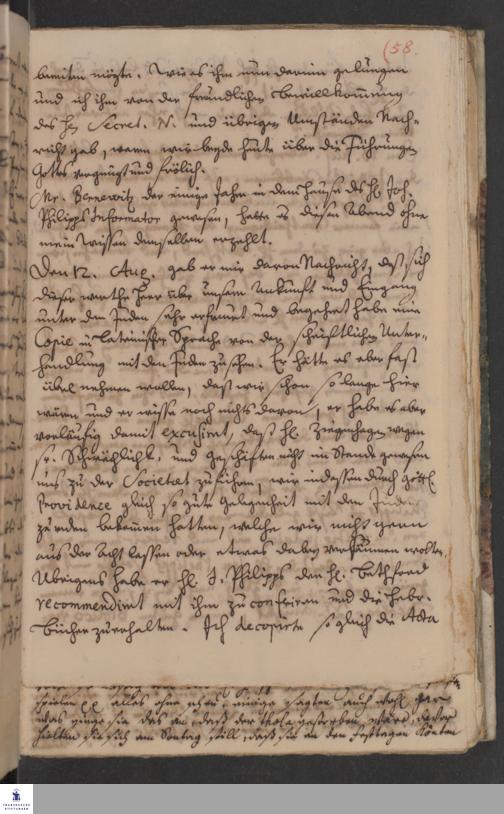 (58.
bereiten mögte. Wie es ihm nun darinn gelungen
und ich ihm von der freundlichen Bewillkommung
des H. Secret. N. und übrigen Umständen Nach-
richt gab, waren wir beyde heute über die Führungen
Gottes vergnügt und frölich.
Mr. Bennewitz der einige Jahre in dem Hause des H. Joh.
Philipps Informator gewesen, hatte es diesen Abend ohne
mein Wissen demselben erzehlt.
Den 12. Aug. gab er mir davon Nachricht, daß sich
dieser werthe Herr über unsere Ankunft und Eingang
unter den Juden sehr erfreuet und begehret habe eine
Copie in Lateinischer Sprache von der schriftlichen Unter-
handlung mit den Juden zu sehen. Er hätte es aber fast
übel nehmen wollen, daß wir schon so lange hier
wären und er wisse noch nichts davon, er habe es aber
vorläufig damit excusiret, daß H. Ziegenhagen wegen
sr. Schwächlichk. und Geschäften nicht im Stande gewesen
uns zu der Societet zu führen, wir indessen durch göttl.
Providence gleich so gute Gelegenheit mit den Juden
zu reden bekommen hatten, welche wir nicht gern
aus der Acht lassen oder etwas dabey versäumen wolten.
Übrigens habe er H. J. Philipps den H. Bathford
recommendiret mit ihm zu conferiren und die Hebr.
Bücher zu erhalten. Ich decopirte so gleich die Acta
alles ohne einige sagten auch wohl gar
was ginge sie das an, daß der gestorben wäre,
hielten sie sich am Sontag still, daß sie an den Festtagen könten
FRANCKESCHE
STIFTUNGEN